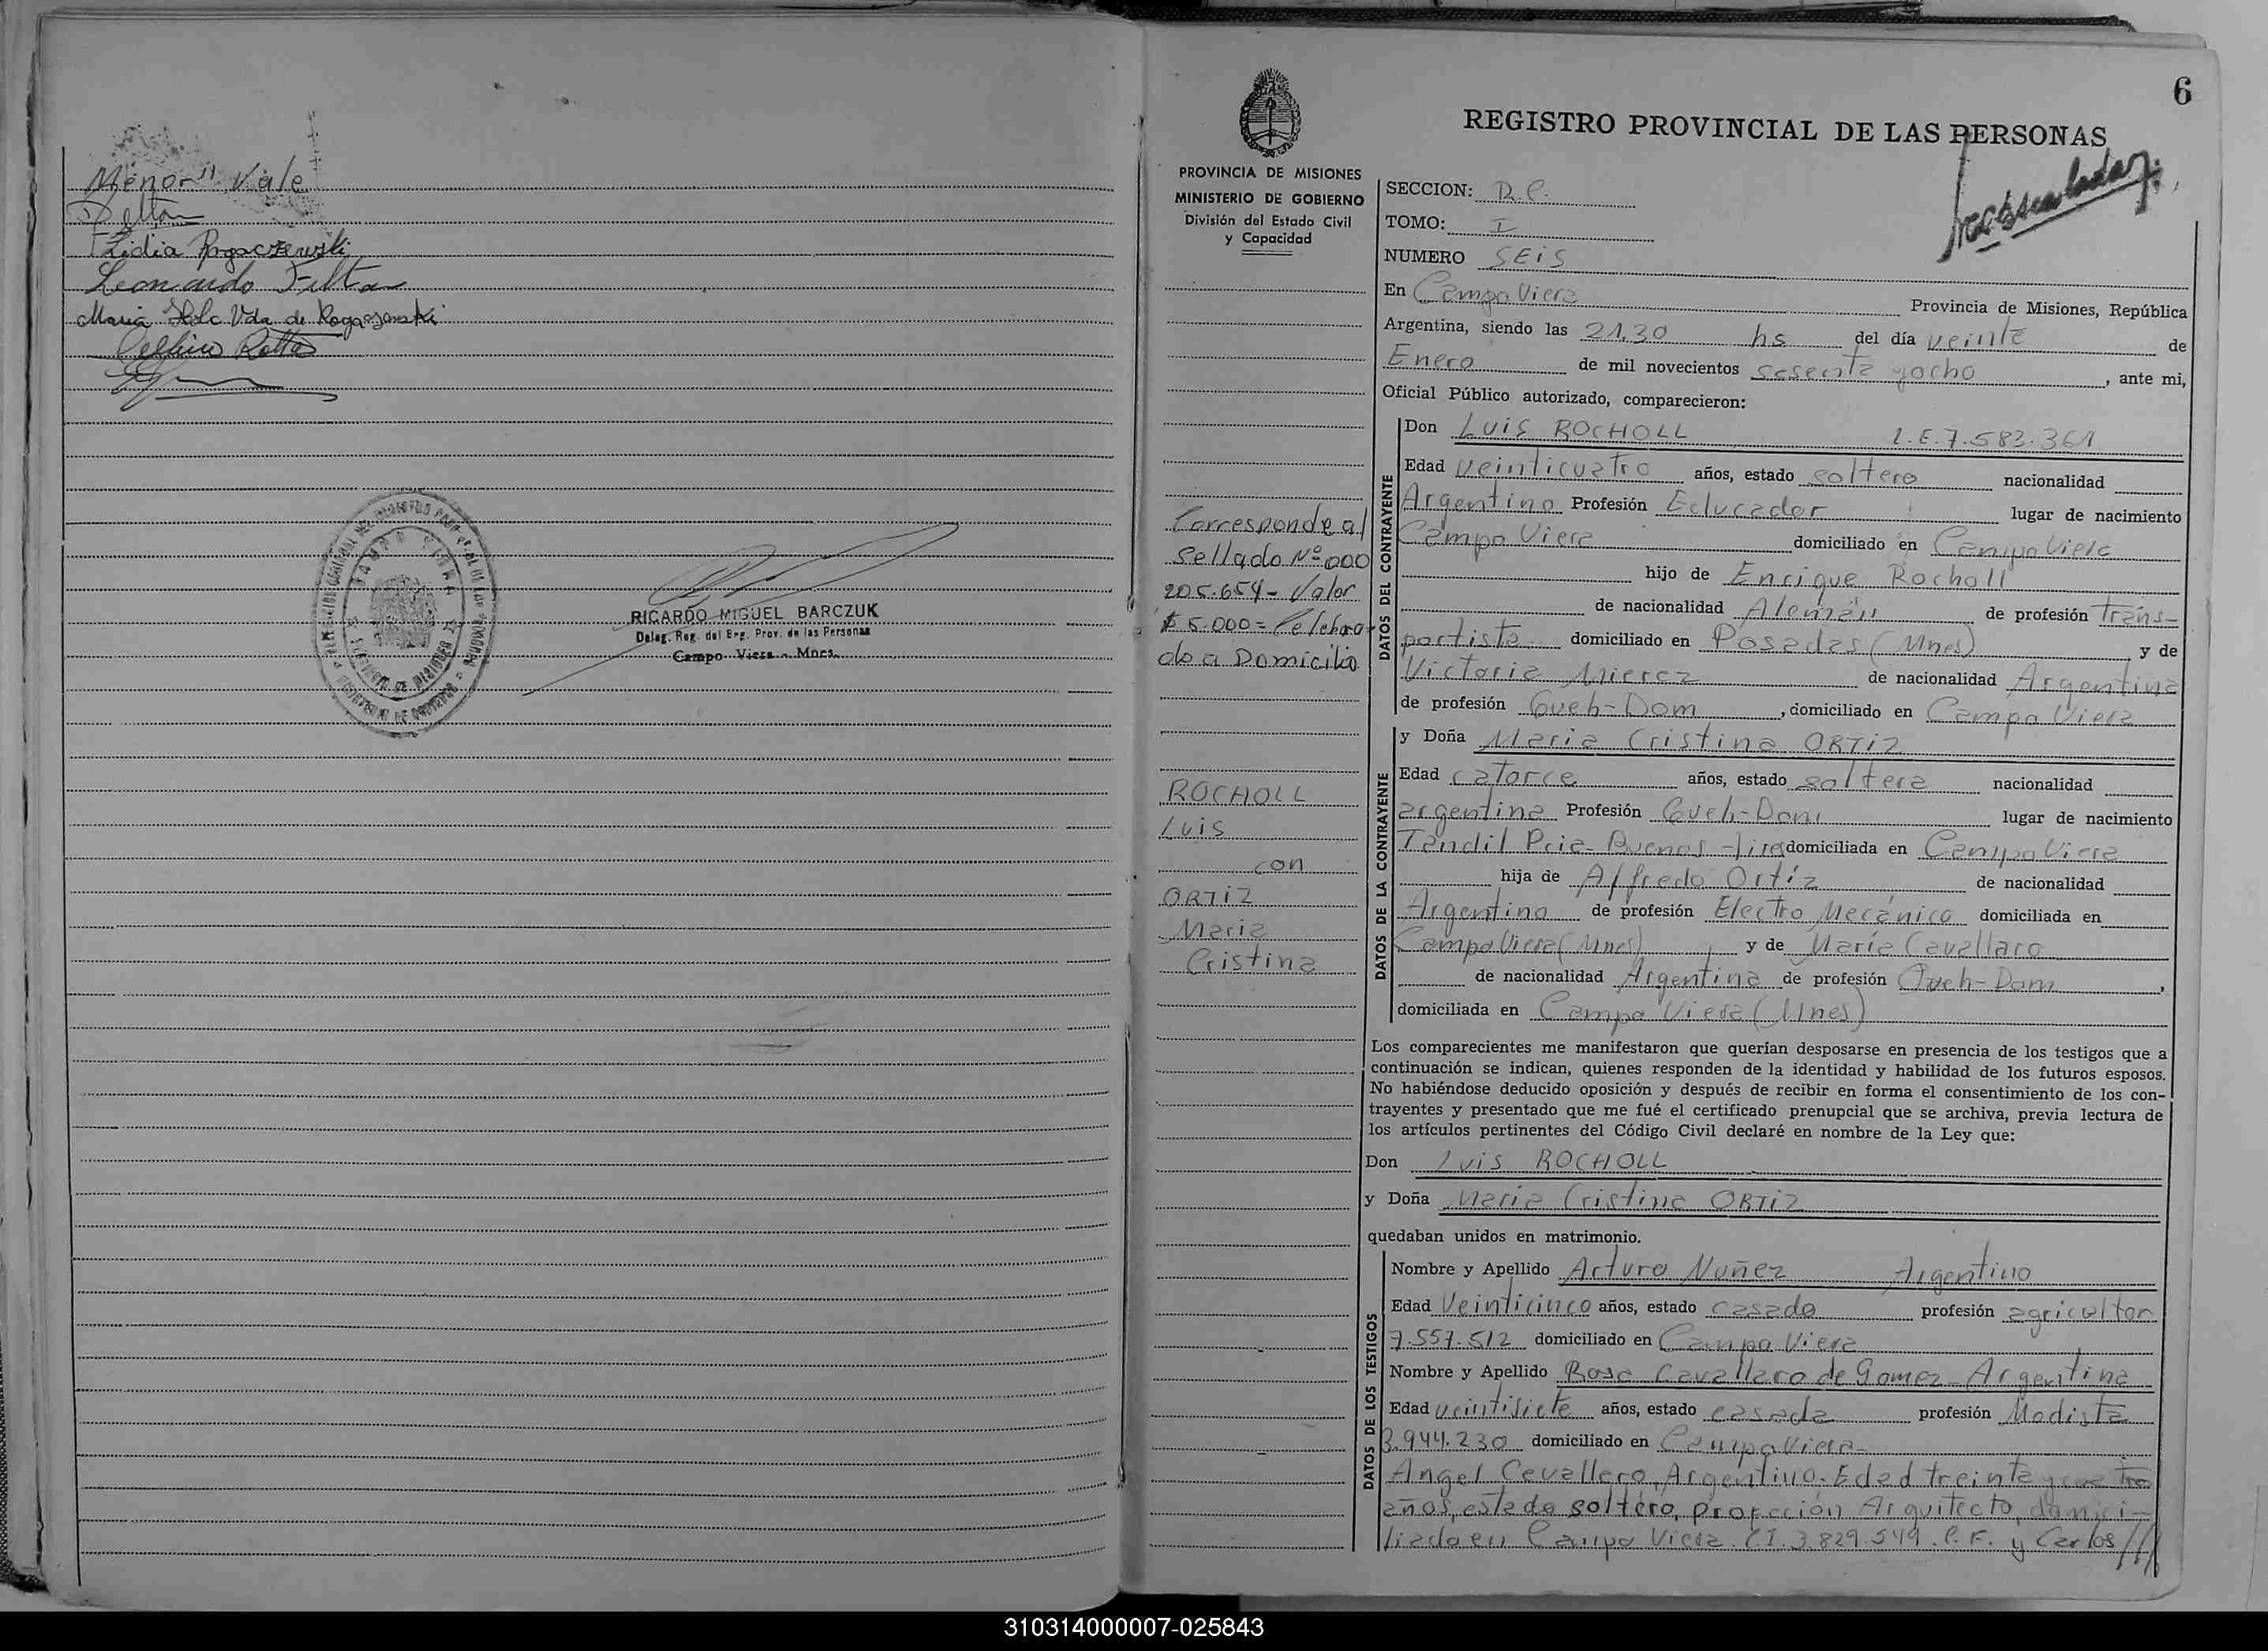 Menor" Vale
Lidia Rogaczewski
Leonardo
Maria Vda de Rogaczewski
RICARDO MIGUEL BARCZUK
Deleg. Reg. del Reg. Prov. de las Personas
Campo Viera - Mnes.
6
REGISTRO PROVINCIAL DE LAS PERSONAS
PROVINCIA DE MISIONES
MINISTERIO DE GOBIERNO
División del Estado Civil
y Capacidad
SECCION: D.C.
TOMO: I
NUMERO SEIS
En Campo Viera Provincia de Misiones, República
Argentina, siendo las 21,30 hs del día veinte de
Enero de mil novecientos sesenta y ocho, ante mi,
Oficial Público autorizado, comparecieron:
DATOS DEL CONTRAYENTE
Don Luis ROCHOLL L.E.7.583.361
Edad veinticuatro años, estado soltero nacionalidad
Argentino Profesión Educador lugar de nacimiento
Campo Viera domiciliado en Campo Viera
hijo de Enrique Rocholl
de nacionalidad Alemán de profesión Trans-
portista domiciliado en Posadas (Mnes) y de
Victoria Mierez de nacionalidad Argentina
de profesión Queh-Dom, domiciliado en Campo Viera
Corresponde al
Sellado Nº 000
205.654- Valor
$ 5.000= Celebra-
do a Domicilio
DATOS DE LA CONTRAYENTE
y Doña Maria Cristina ORTIZ
Edad catorce años, estado soltera nacionalidad
argentina Profesión Queh-Dom lugar de nacimiento
Tandil Pcia. Buenos Aires domiciliada en Campo Viera
hija de Alfredo Ortíz de nacionalidad
Argentino de profesión Electro Mecánico domiciliada en
Campo Viera (Mnes) y de María Cavallaro
de nacionalidad Argentina de profesión Queh-Dom,
domiciliada en Campo Viera (Mnes)
ROCHOLL
Luis
con
ORTIZ
Maria
Cristina
Los comparecientes me manifestaron que querían desposarse en presencia de los testigos que a
continuación se indican, quienes responden de la identidad y habilidad de los futuros esposos.
No habiéndose deducido oposición y después de recibir en forma el consentimiento de los con-
trayentes y presentado que me fué el certificado prenupcial que se archiva, previa lectura de
los artículos pertinentes del Código Civil declaré en nombre de la Ley que:
Don Luis ROCHOLL
y Doña Maria Cristina ORTIZ
quedaban unidos en matrimonio.
DATOS DE LOS TESTIGOS
Nombre y Apellido Arturo Nuñez Argentino
Edad Veinticinco años, estado casado profesión agricultor
7.557.512 domiciliado en Campo Viera
Nombre y Apellido Rosa Cavallaro de Gomez - Argentina
Edad veintisiete años, estado casada profesión Modista
3.944.230 domiciliado en Campo Viera-
Angel Cavallaro, Argentino. Edad treinta y
años, estado soltero, profección Arquitecto, domici-
liado en Campo Viera. C.I. 3.829.549. C.F. y Carlos //
310314000007-025843